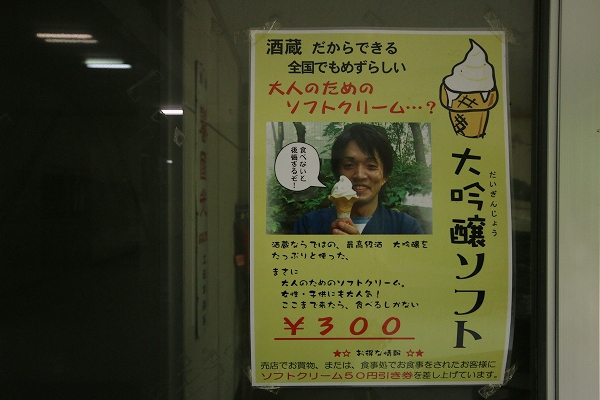 酒蔵 だからできる
全国でもめずらしい
大人のための
ソフトクリーム…?
食べないと
後悔するぞ!
大吟醸ソフト
だいぎんじょう
酒蔵ならではの、最高級酒 大吟醸を
たっぷりと使った、
まさに
大人のためのソフトクリーム。
女性・子供にも大人気!
ここまで来たら、食べるしかない
¥300
★☆ お得な情報 ☆★
売店でお買物、または、食事処でお食事をされたお客様に
ソフトクリーム50円引き券を差し上げています。